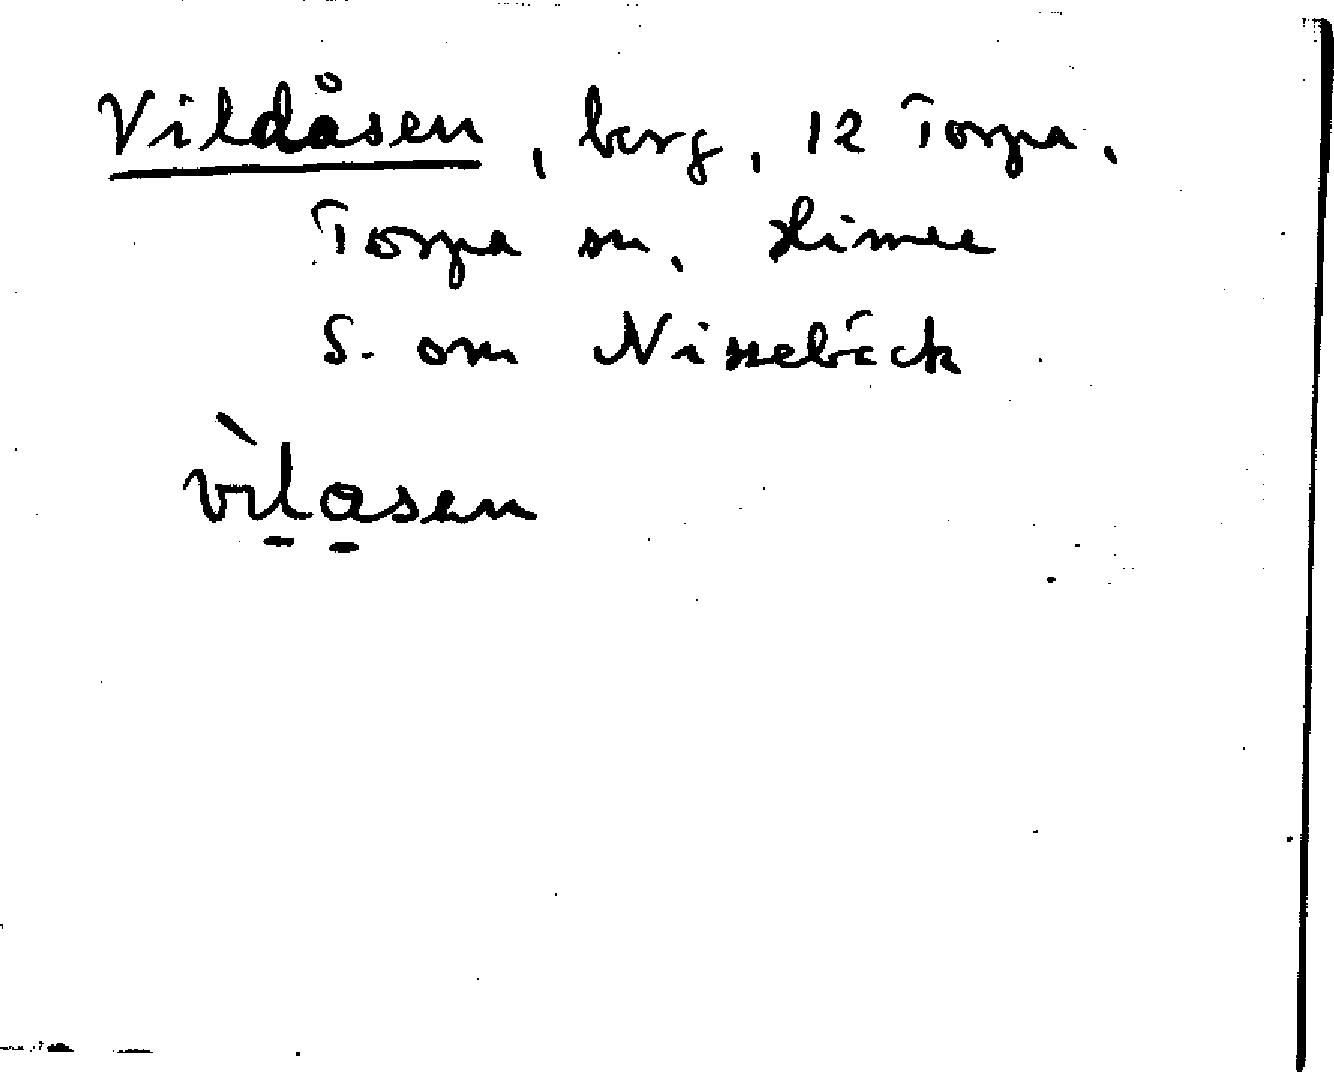 Vildåsen, berg, 12 Torpa,
Torpa sn, Himle
S. om Nissebäck
vìlasen